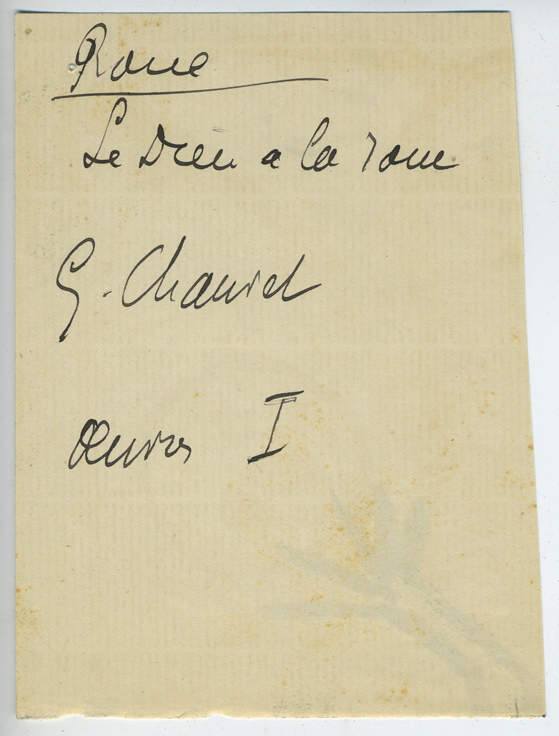 Roue
Le Dieu a la roue
G. Chauvet
Œuvres I